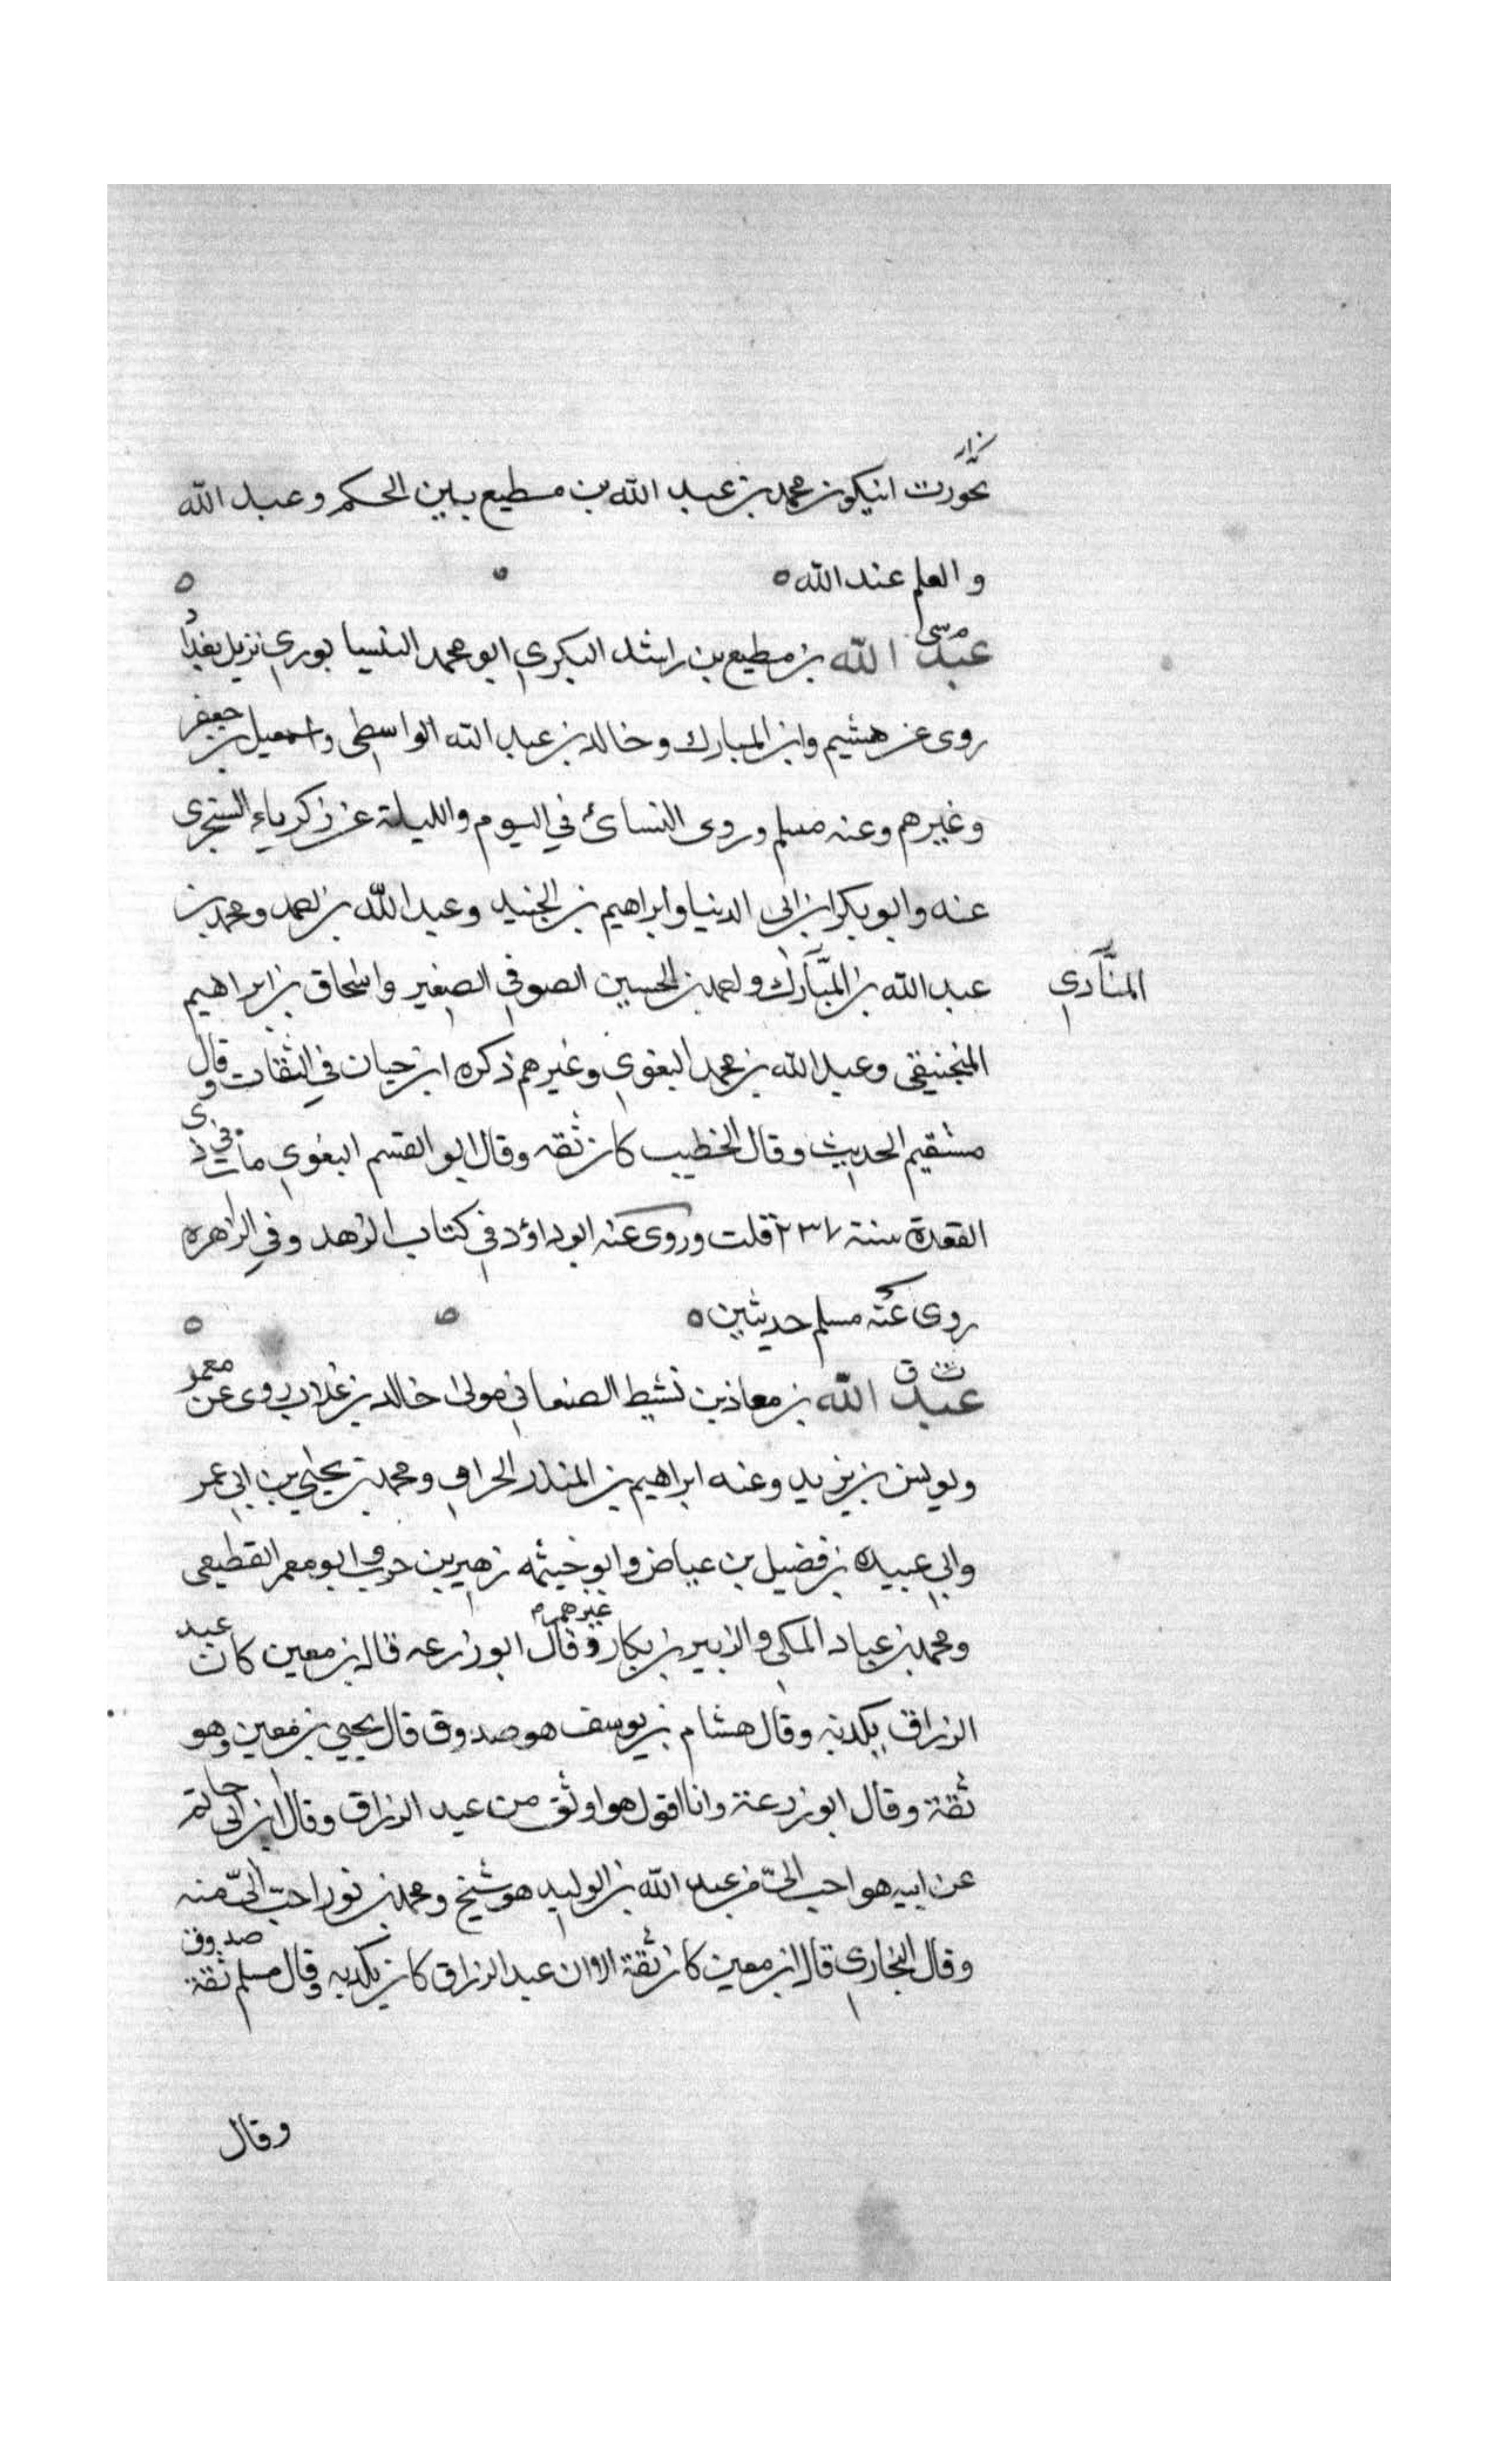 نحورت ان يكون محمد بن عبد الله بن مطيع بين الحكم وعبد الله
والعلم عند الله ه
م سي
عبد الله بن مطيع بن راشد البكري ابو محمد النيسابوري نزيل بغداد
روى عن هشيم وابن المبارك وخالد بن عبد الله الواسطى واسمعيل بن جعفر
وغيرهم وعنه مسلم وروى النسائ في اليوم والليلة عن زكرياء السنجرى
عنه وابو بكر ابن ابى الدنيا وابراهيم بن الجنيد وعبد الله بن احمد ومحمد بن
عبد الله بن المبارك واحمد بن الحسين الصوفي الصغير واسحاق بن ابراهيم
المنادي
المنجنيقى وعبد الله بن محمد البغوي وغيرهم ذكره ابن حبان في الثقات وقال
مستقيم الحديث وقال الخطيب كان ثقه وقال ابو القسم البغوي مات في ذى
القعدة سنة ٢٣٧ قلت وروى عنه ابو داؤد في كتاب الزهد وفي الزهره
روى عنه مسلم حديثين ه
ت ق
عبد الله بن معاذ بن نشيط الصنعاني مولى خالد بن غلاب روى عن معمر
ويونس بن يزيد وعنه ابراهيم بن المنذر الحزامي ومحمد بن يحيى بن ابي عمر
وابي عبيده بن فضيل بن عياض وابو خيثمه زهير بن حرب وابو معمر القطيعى
ومحمد بن عباد المكي والزبير بن بكار وغيرهم وقال ابو زرعه قال ابن معين كان عبد
الرزاق يكذبه وقال هشام بن يوسف هو صدوق قال يحيي بن معين وهو
ثقة وقال ابو زرعة وانا اقول هو اوثق من عبد الرزاق وقال ابن ابى حاتم
عن ابيه هو احب الىّ من عبد الله بن الوليد هو شيخ ومحمد بن ثور احبّ الىّ منه
وقال البخاري قال ابن معين كان ثقة الا ان عبد الرزاق كان يكذبه وقال مسلم ثقة صدوق
وقال